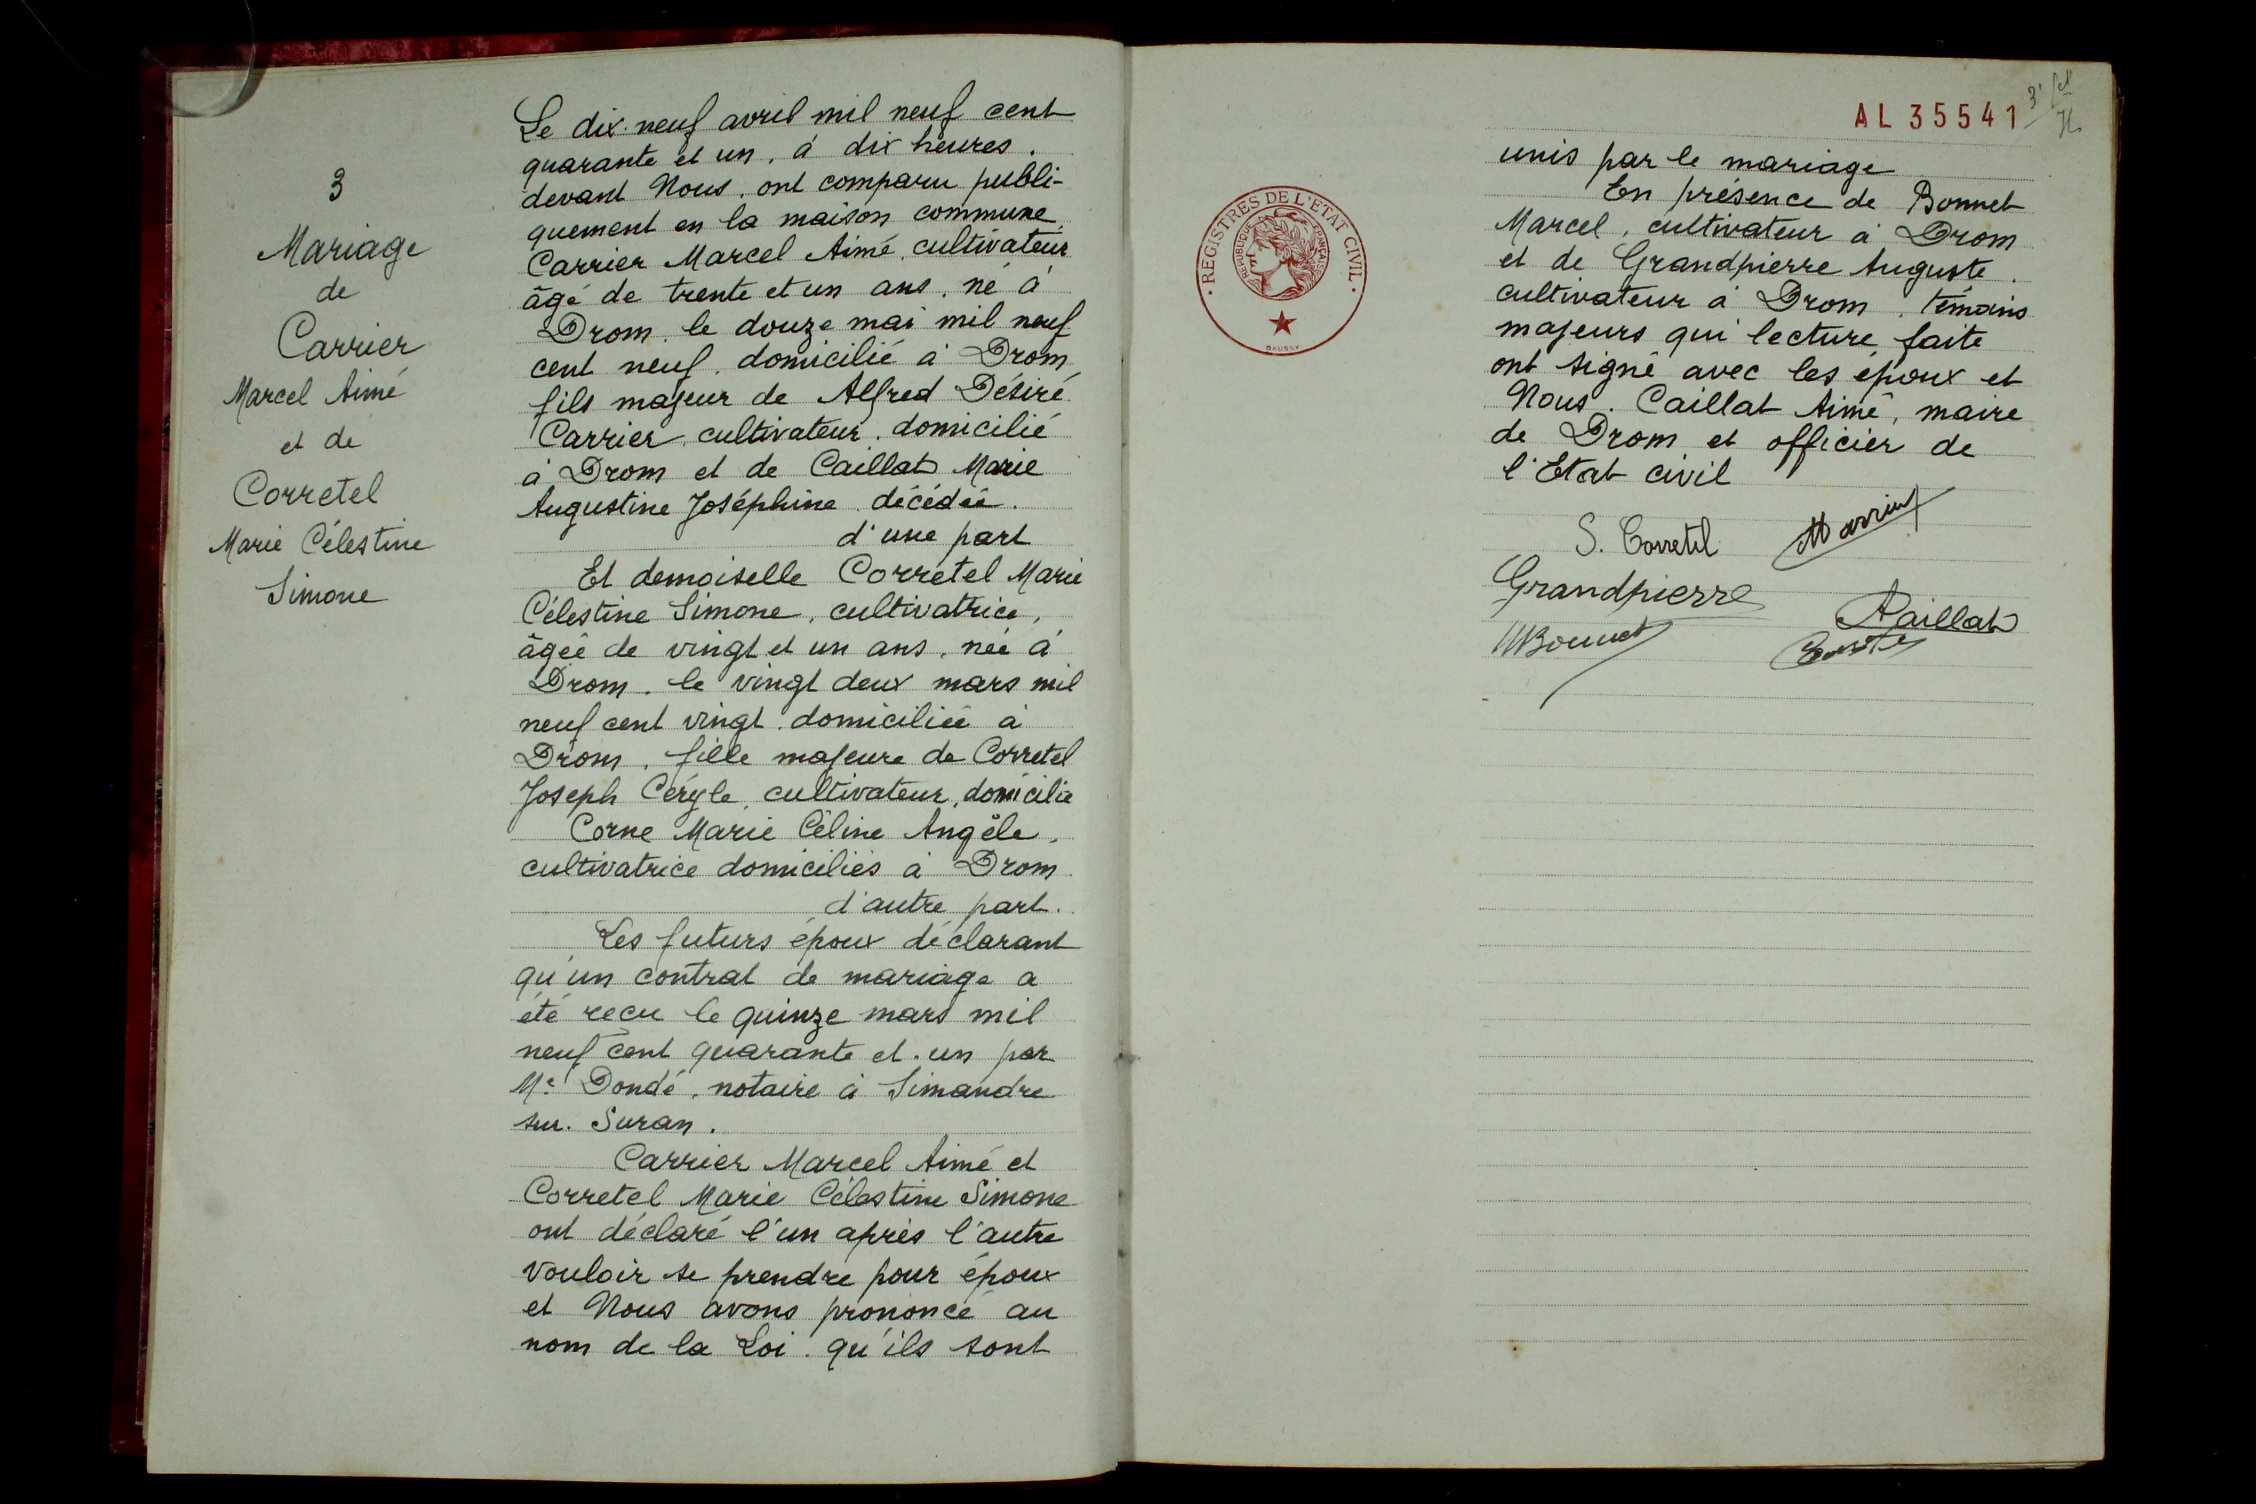 3
Mariage
de
Carrier
Marcel Aimé
et de
Corretel
Marie Célestine
Simone
Le dix-neuf avril mil neuf cent
quarante et un, à dix heures.
devant Nous, ont comparu publi-
quement en la maison commune
Carrier Marcel Aimé, cultivateur
âgé de trente et un ans, né à
Drom, le douze mai mil neuf
cent neuf, domicilié à Drom,
fils majeur de Alfred Désiré
Carrier, cultivateur, domicilié
à Drom et de Caillat Marie
Augustine Joséphine, décédée.
d'une part
Et demoiselle Corretel Marie
Célestine Simone, cultivatrice,
âgée de vingt et un ans, née à
Drom, le vingt deux mars mil
neuf cent vingt, domiciliée à
Drom, fille majeure de Corretel
Joseph, cultivateur, domicilié
Corne Marie Céline Angèle,
cultivatrice domiciliés à Drom
d'autre part.
Les futurs époux déclarant
qu'un contrat de mariage a
été reçu le quinze mars mil
neuf cent quarante et un par
Me Dondé, notaire à Simandre
sur Suran.
Carrier Marcel Aimé et
Corretel Marie Célestine Simone
ont déclaré l'un après l'autre
vouloir se prendre pour époux
et Nous avons prononcé au
nom de la Loi qu'ils sont
REGISTRES DE L'ETAT CIVIL
REPUBLIQUE FRANÇAISE
AL 35541
unis par le mariage
En présence de Bonnet
Marcel, cultivateur à Drom
et de Grandpierre Auguste,
cultivateur à Drom, témoins
majeurs qui lecture faite
ont signé avec les époux et
Nous, Caillat Aimé, maire
de Drom et officier de
l'Etat civil
S. Corretel
Grandpierre
ACaillat
MBonnet